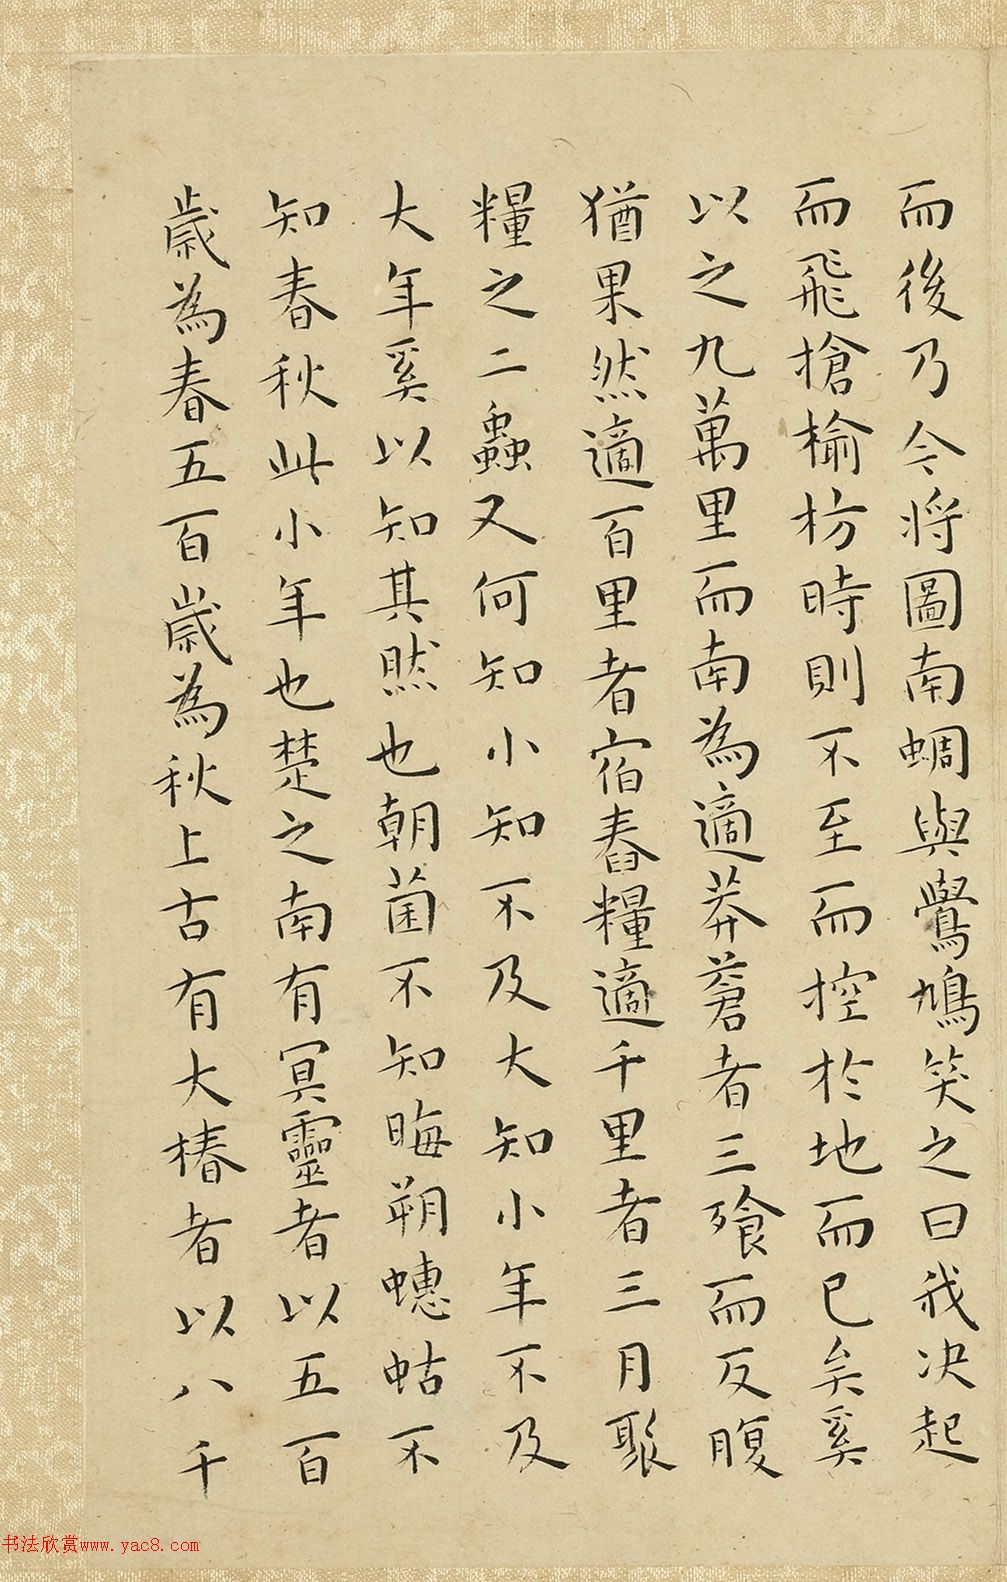 而後乃今將圖南蜩與鷽鳩笑之曰我决起
而飛搶榆枋時則不至而控於地而已矣奚
以之九萬里而南為適莽蒼者三飡而反腹
猶果然適百里者宿舂糧適千里者三月聚
糧之二蟲又何知小知不及大知小年不及
大年奚以知其然也朝菌不知晦朔蟪蛄不
知春秋此小年也楚之南有冥靈者以五百
歲為春五百歲為秋上古有大椿者以八千
书法欣赏www.yac8.com